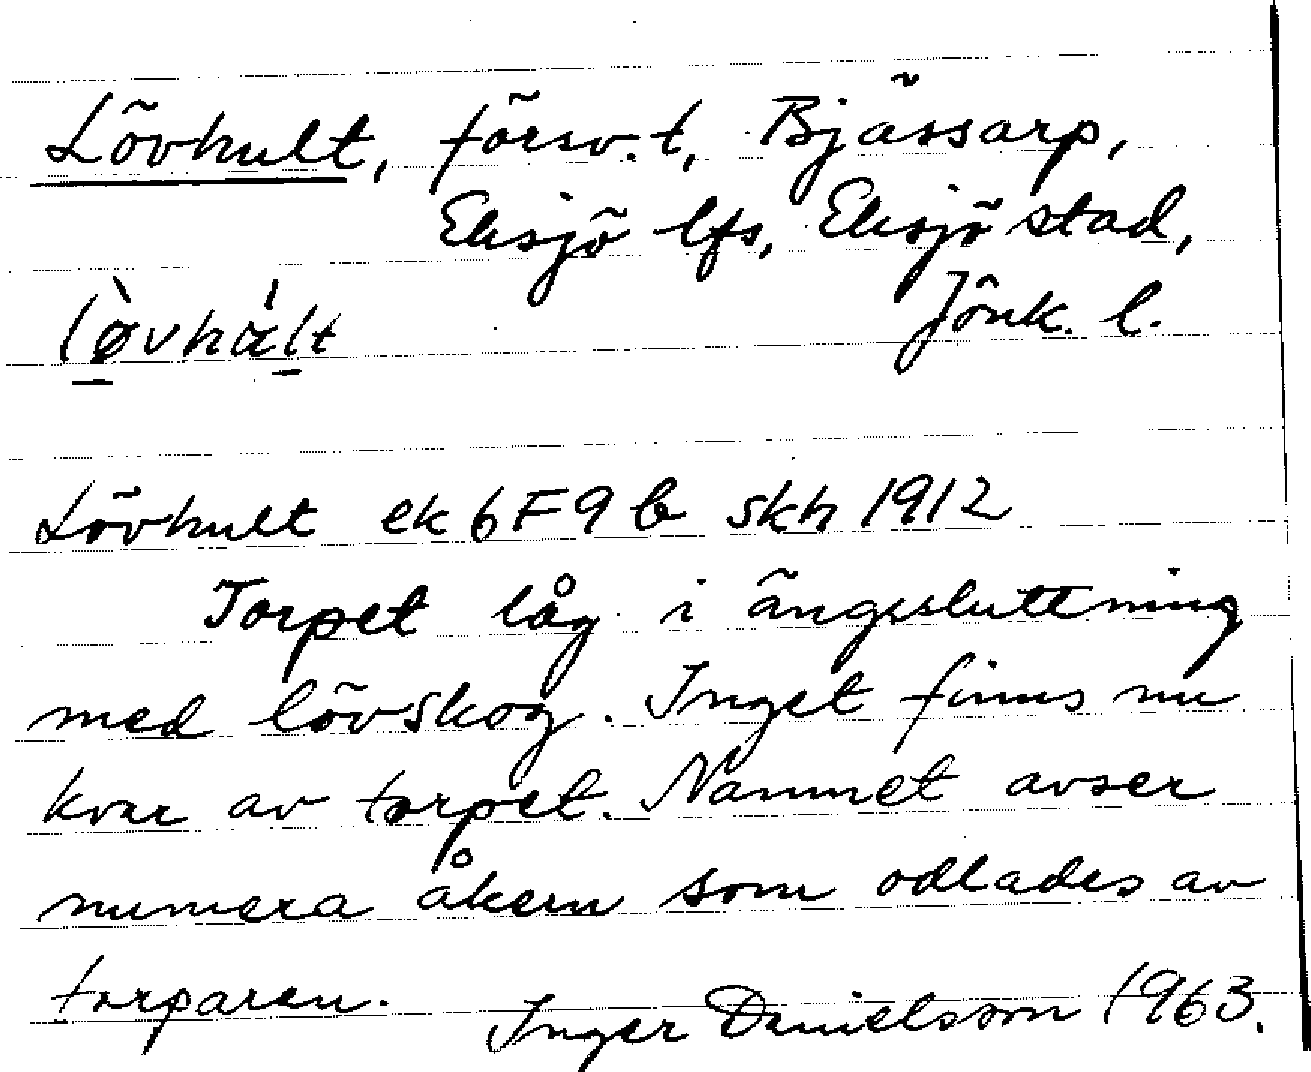 Lövhult, försv. t, Bjässarp,
Eksjö lfs, Eksjö stad,
Jönk. l.
lø̀vhált
Lövhult ek 6F9b skh 1912
Torpet låg i ängssluttning
med lövskog. Inget finns nu
kvar av torpet. Namnet avser
numera åkern som odlades av
torparen.
Inger Danielsson 1963.